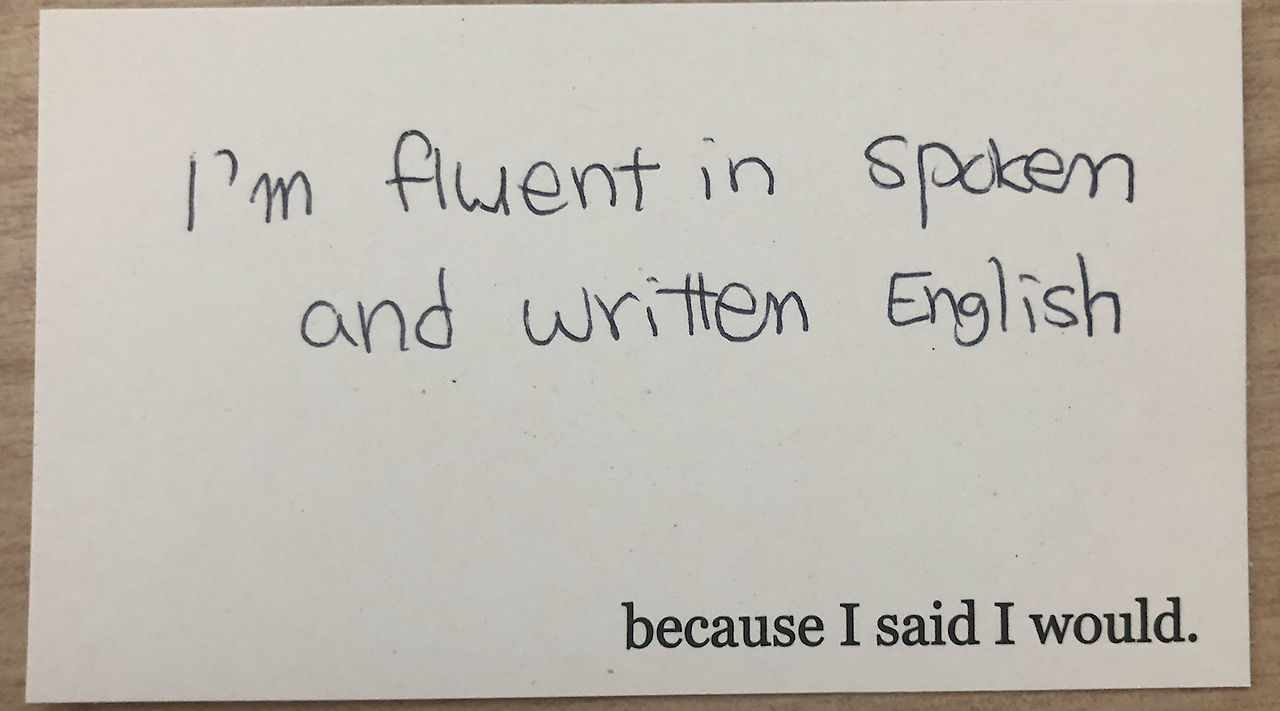 I'm fluent in spoken
and written English
because I said I would.